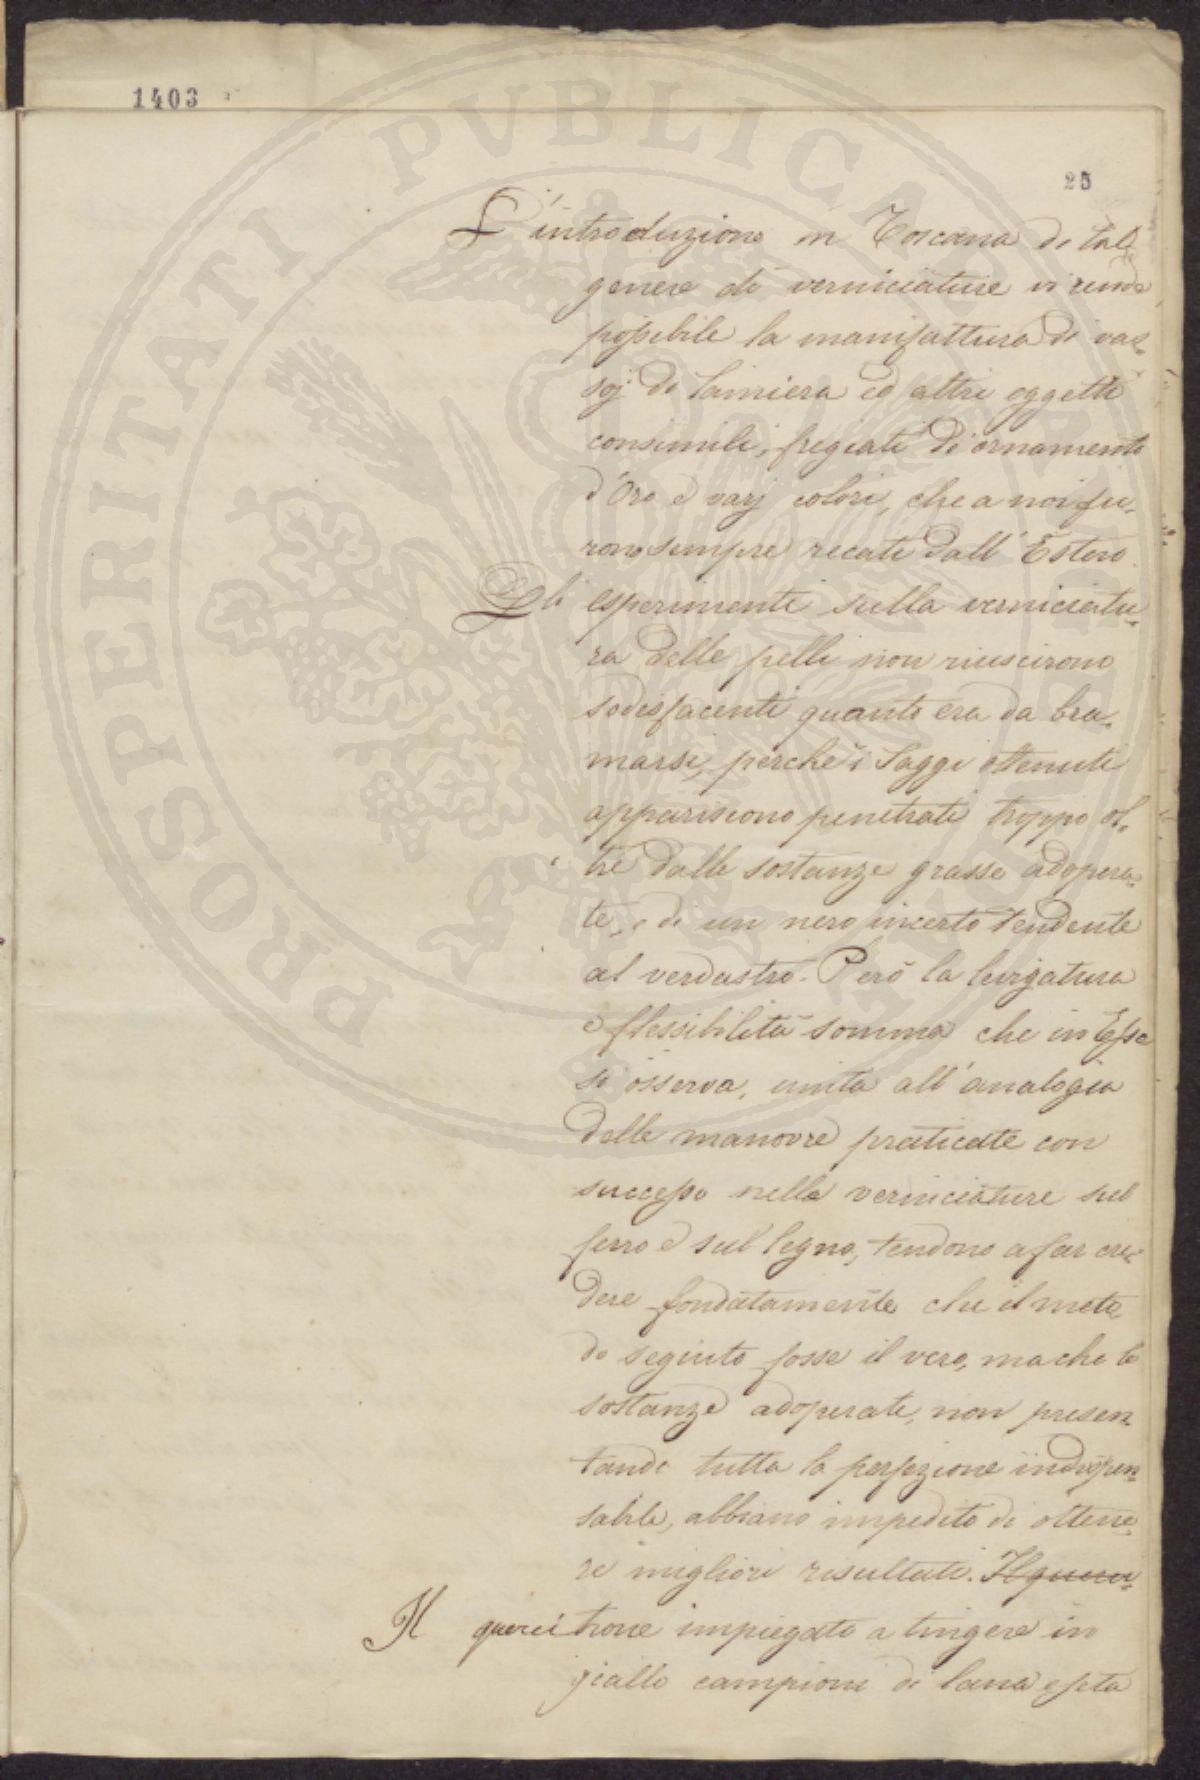 1403
25
L'introduzione in Toscana di tal
genere di verniciature vi rende
possibile la manifattura di vas-
soj di lamiera ed altri oggetti
consimili, fregiati di ornamenti
d'Oro e varj colori, che a noi fu-
rono sempre recati dall'Estero.
Gli esperimenti sulla verniciatu-
ra delle pelli non riuscirono
sodisfacenti quanto era da bra-
marsi, perchè i saggi ottenuti
appariscono penetrati troppo ol-
tre dalle sostanze grasse adopera-
te, e di un nero incerto tendente
al verdastro. Però la levigatura
e flessibilità somma che in Esse
si osserva, unita all'analogia
delle manovre praticate con
successo nelle verniciature sul
ferro e sul legno, tendono a far cre-
dere fondatamente che il meto-
do seguito fosse il vero, ma che le
sostanze adoperate, non presen-
tando tutta la perfezione indispen-
sabile, abbiano impedito di ottene-
re migliori risultati. Il querci-
Il querci trone impiegato a tingere in
giallo campioni di lana e seta
PROSPERITATI PVBLICAE AVGENDAE